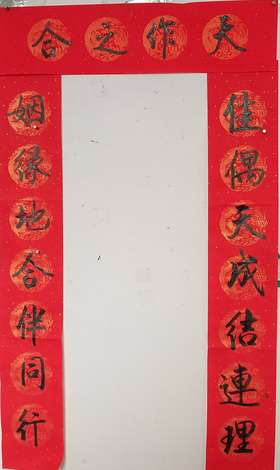 天作之合
佳偶天成結連理
姻缘地合伴同行